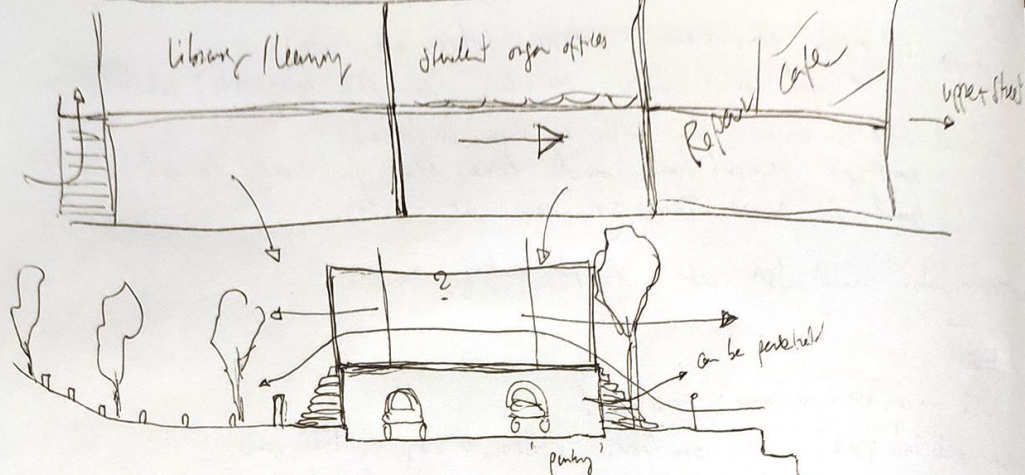 Library / learning
student organ offices
Repair
Cafe
upper street
?
can be penetrated
'parking'